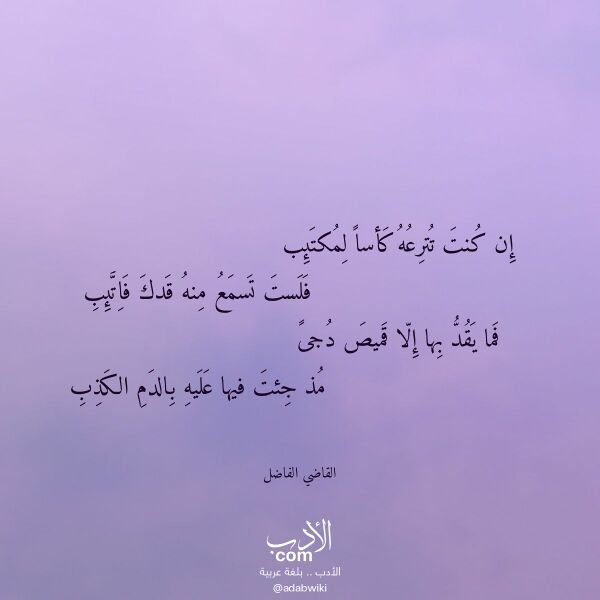 إِن كُنتَ تُترِعُهُ كَأساً لِمُكتَئِب
فَلَستَ تَسمَعُ مِنهُ قَدكَ فَاِتَّئِبِ
فَما يَقُدُّ بِها إِلّا قَميصَ دُجىً
مُذ جِئتَ فيها عَلَيهِ بِالدَمِ الكَذِبِ
القاضي الفاضل
الأدب
.com
الأدب .. بلغة عربية
@adabwiki